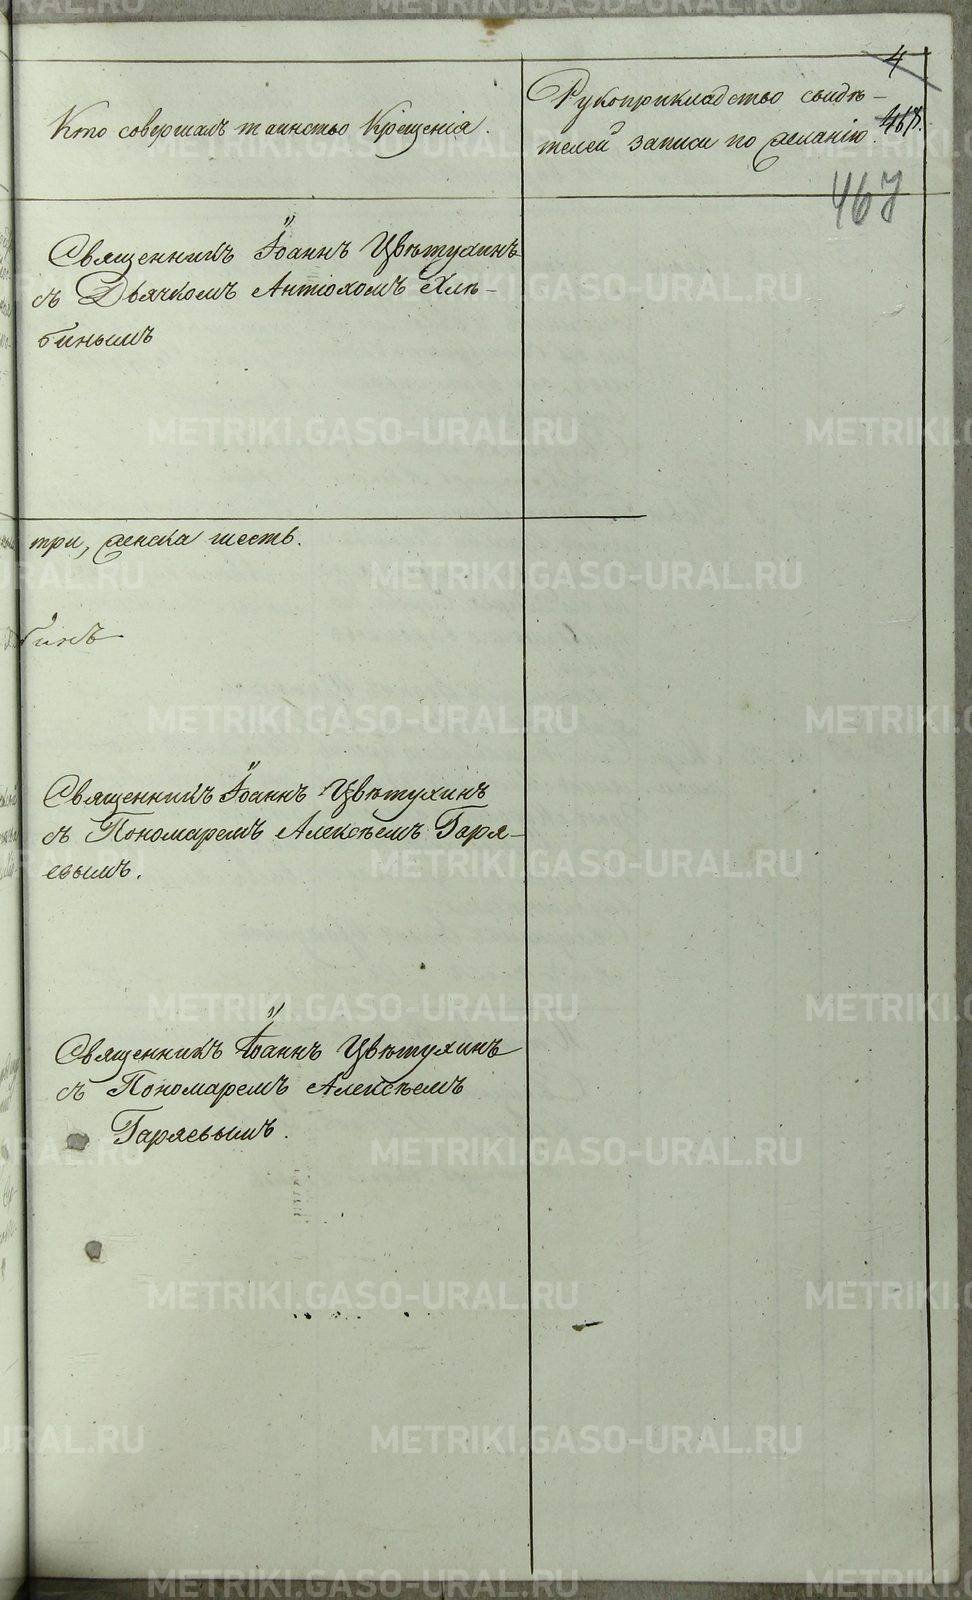 4
Кто совершалъ таинство Крещенія.
Рукоприкладство свидѣ-
телей записи по желанію.
467.
467
Священникъ Іоаннъ Цвѣтухинъ
съ Дьячкомъ Антіохомъ Хлѣ-
бинымъ
три, женска шесть.
бинъ
Священникъ Іоаннъ Цвѣтухинъ
съ Пономаремъ Алексѣемъ Гаря-
евымъ.
Священникъ Іоаннъ Цвѣтухинъ
съ Пономаремъ Алексѣемъ
Гаряевымъ.
METRIKI.GASO-URAL.RU